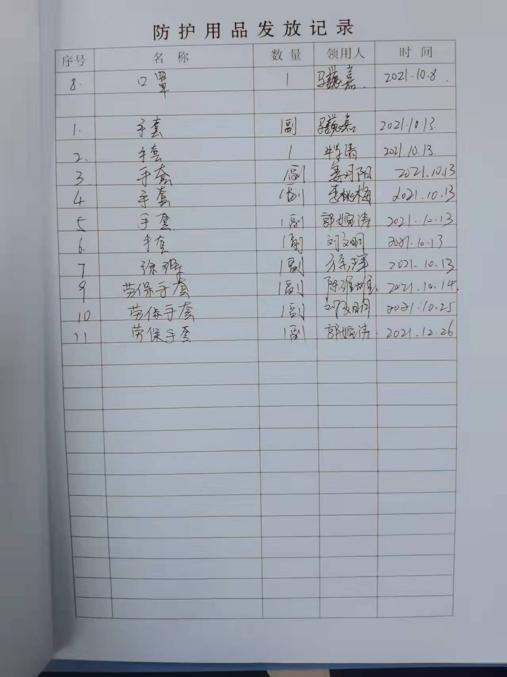 防护用品发放记录
序号 名称 数量 领用人 时间
8. 口罩 1 嘉 2021.10.8.
1. 手套 1副 嘉 2021.10.13
2. 手套 1 2021.10.13
3 手套 1副 阳 2021.10.13
4 手套 1副 梅 2021.10.13
5 手套 1副 郭婉涛 2021.10.13
6 手套 1副 刘文明 2021.10.13
7 1副 2021.10.13
9 劳保手套 1副 陈 2021.10.14.
10 劳保手套 1副 刘文明 2021.10.25
11 劳保手套 1副 郭婉涛 2021.12.26